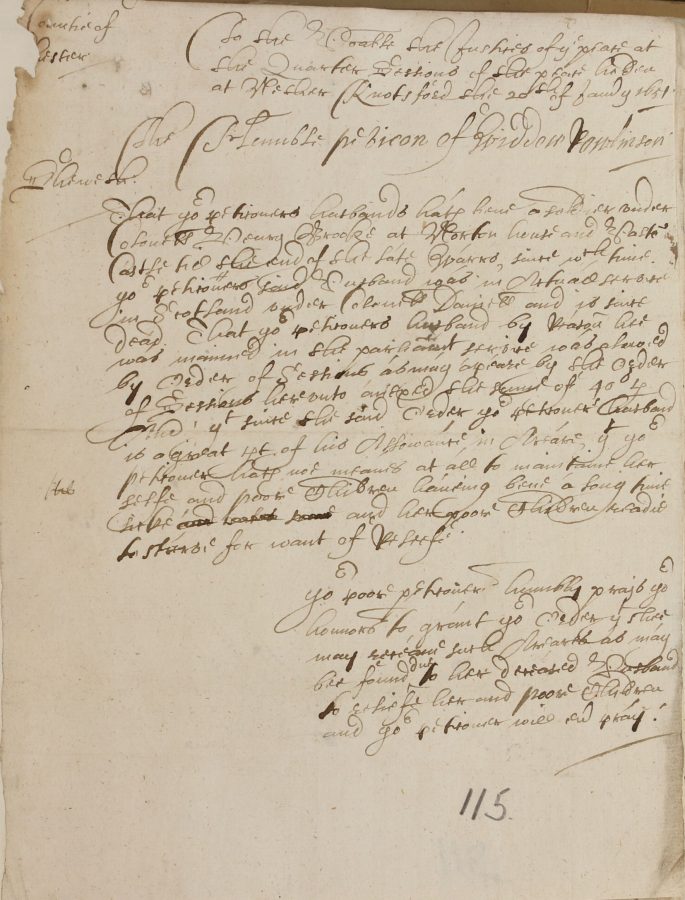 Countie of
Chester
To the Wor:ble the Justices of ye peace at
the Quarter Sessions of the peace holden
at Nether Knotsford the 20th of Jan:ry 1651
The Humble peticon of Widdow Rowlinson
Sheweth.
That yor petitioners husband hath bene a soldier under
Colonell Henry Brooke at Norton house and
Castle till the end of the late Warrs, since wch time
yor petitioners said Husband was in Actuall service
in Scotland under Colonell Daniell and is since
dead. That yor petitioners husband by Reason hee
was maymed in the parliamt service was alowed
by Order of Sessions as may apeare by the Order
of Sessions hereunto anexed the some of 40s p
And yt since the said Order yor petitioners husband
is a great pt. of his Allowance in Areare, yt yor
petitioner hath not meanes at all to maintaine her
selfe and poore Children haveing bene a long time
sicke and her poore Children readie
to starve for want of Releefe
yor poore petitioner humbly prays yor
honnors to grant yor Order yt shee
may receive such Areares as may
bee found due to her deceased Husband
to releife her and poore Children
and yor petitioner will ever pray.
115.